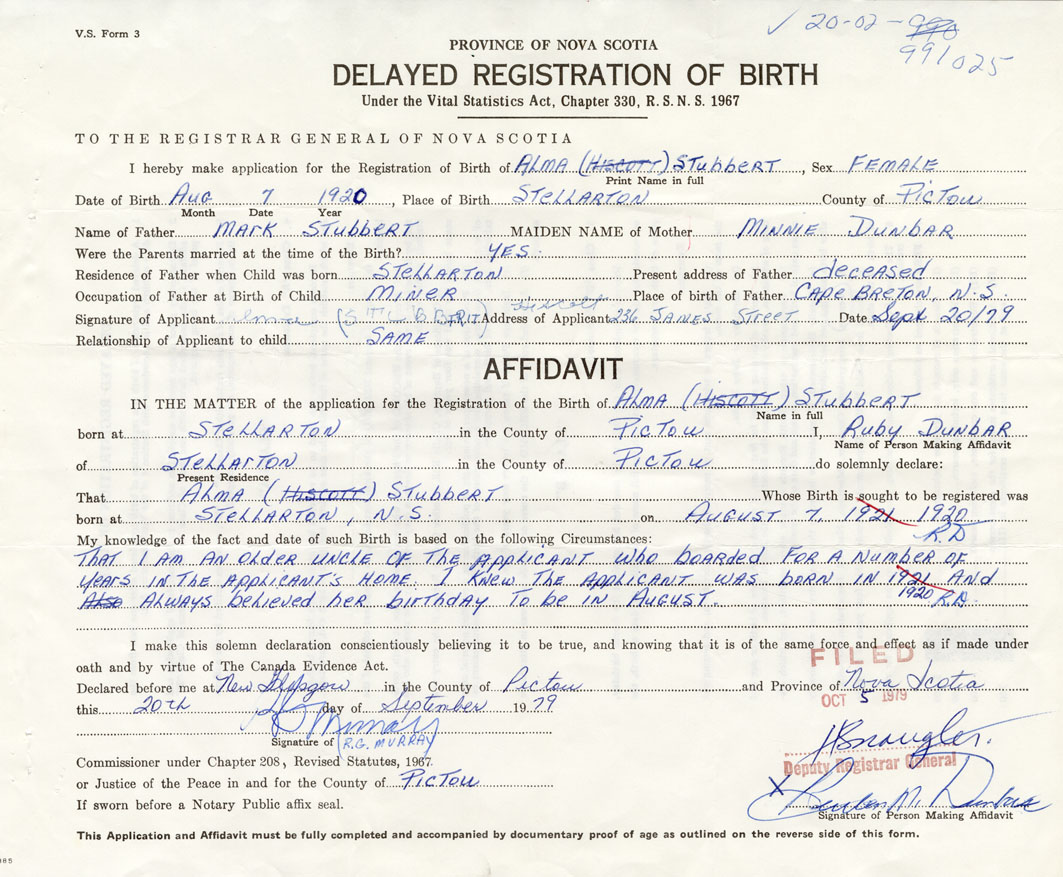 V.S. Form 3
✓ 20-02-990
991025
PROVINCE OF NOVA SCOTIA
DELAYED REGISTRATION OF BIRTH
Under the Vital Statistics Act, Chapter 330, R.S.N.S. 1967
TO THE REGISTRAR GENERAL OF NOVA SCOTIA
I hereby make application for the Registration of Birth of ALMA (HISCOTT) STUBBERT, Sex FEMALE
Print Name in full
Date of Birth AUG 7 1920, Place of Birth STELLARTON County of PICTOU
Month Date Year
Name of Father MARK STUBBERT MAIDEN NAME of Mother MINNIE DUNBAR
Were the Parents married at the time of the Birth? YES.
Residence of Father when Child was born STELLARTON Present address of Father deceased
Occupation of Father at Birth of Child MINER Place of birth of Father CAPE BRETON, N.S.
Signature of Applicant Alma (STUBBERT) Hiscott Address of Applicant 236 JAMES STREET Date Sept 20/79
Relationship of Applicant to child SAME
AFFIDAVIT
IN THE MATTER of the application for the Registration of the Birth of ALMA (HISCOTT) STUBBERT
Name in full
born at STELLARTON in the County of PICTOU I, RUBY DUNBAR
Name of Person Making Affidavit
of STELLARTON in the County of PICTOU do solemnly declare:
Present Residence
That ALMA (HISCOTT) STUBBERT Whose Birth is sought to be registered was
born at STELLARTON, N.S. on AUGUST 7, 1921 1920
R.D
My knowledge of the fact and date of such Birth is based on the following Circumstances:
THAT I AM AN OLDER UNCLE OF THE APPLICANT WHO BOARDED FOR A NUMBER OF
YEARS IN THE APPLICANT'S HOME. I KNEW THE APPLICANT WAS BORN IN 1921 AND
ALSO ALWAYS BELIEVED HER BIRTHDAY TO BE IN AUGUST. 1920 R.D.
I make this solemn declaration conscientiously believing it to be true, and knowing that it is of the same force and effect as if made under
oath and by virtue of The Canada Evidence Act.
FILED
Declared before me at New Glasgow in the County of Pictou and Province of Nova Scotia
OCT 5 1979
this 20th day of September 1979
Signature of (R.G. MURRAY)
Commissioner under Chapter 208, Revised Statutes, 1967.
Deputy Registrar General
or Justice of the Peace in and for the County of PICTOU
X Reuben M. Dunbar
If sworn before a Notary Public affix seal.
Signature of Person Making Affidavit
This Application and Affidavit must be fully completed and accompanied by documentary proof of age as outlined on the reverse side of this form.